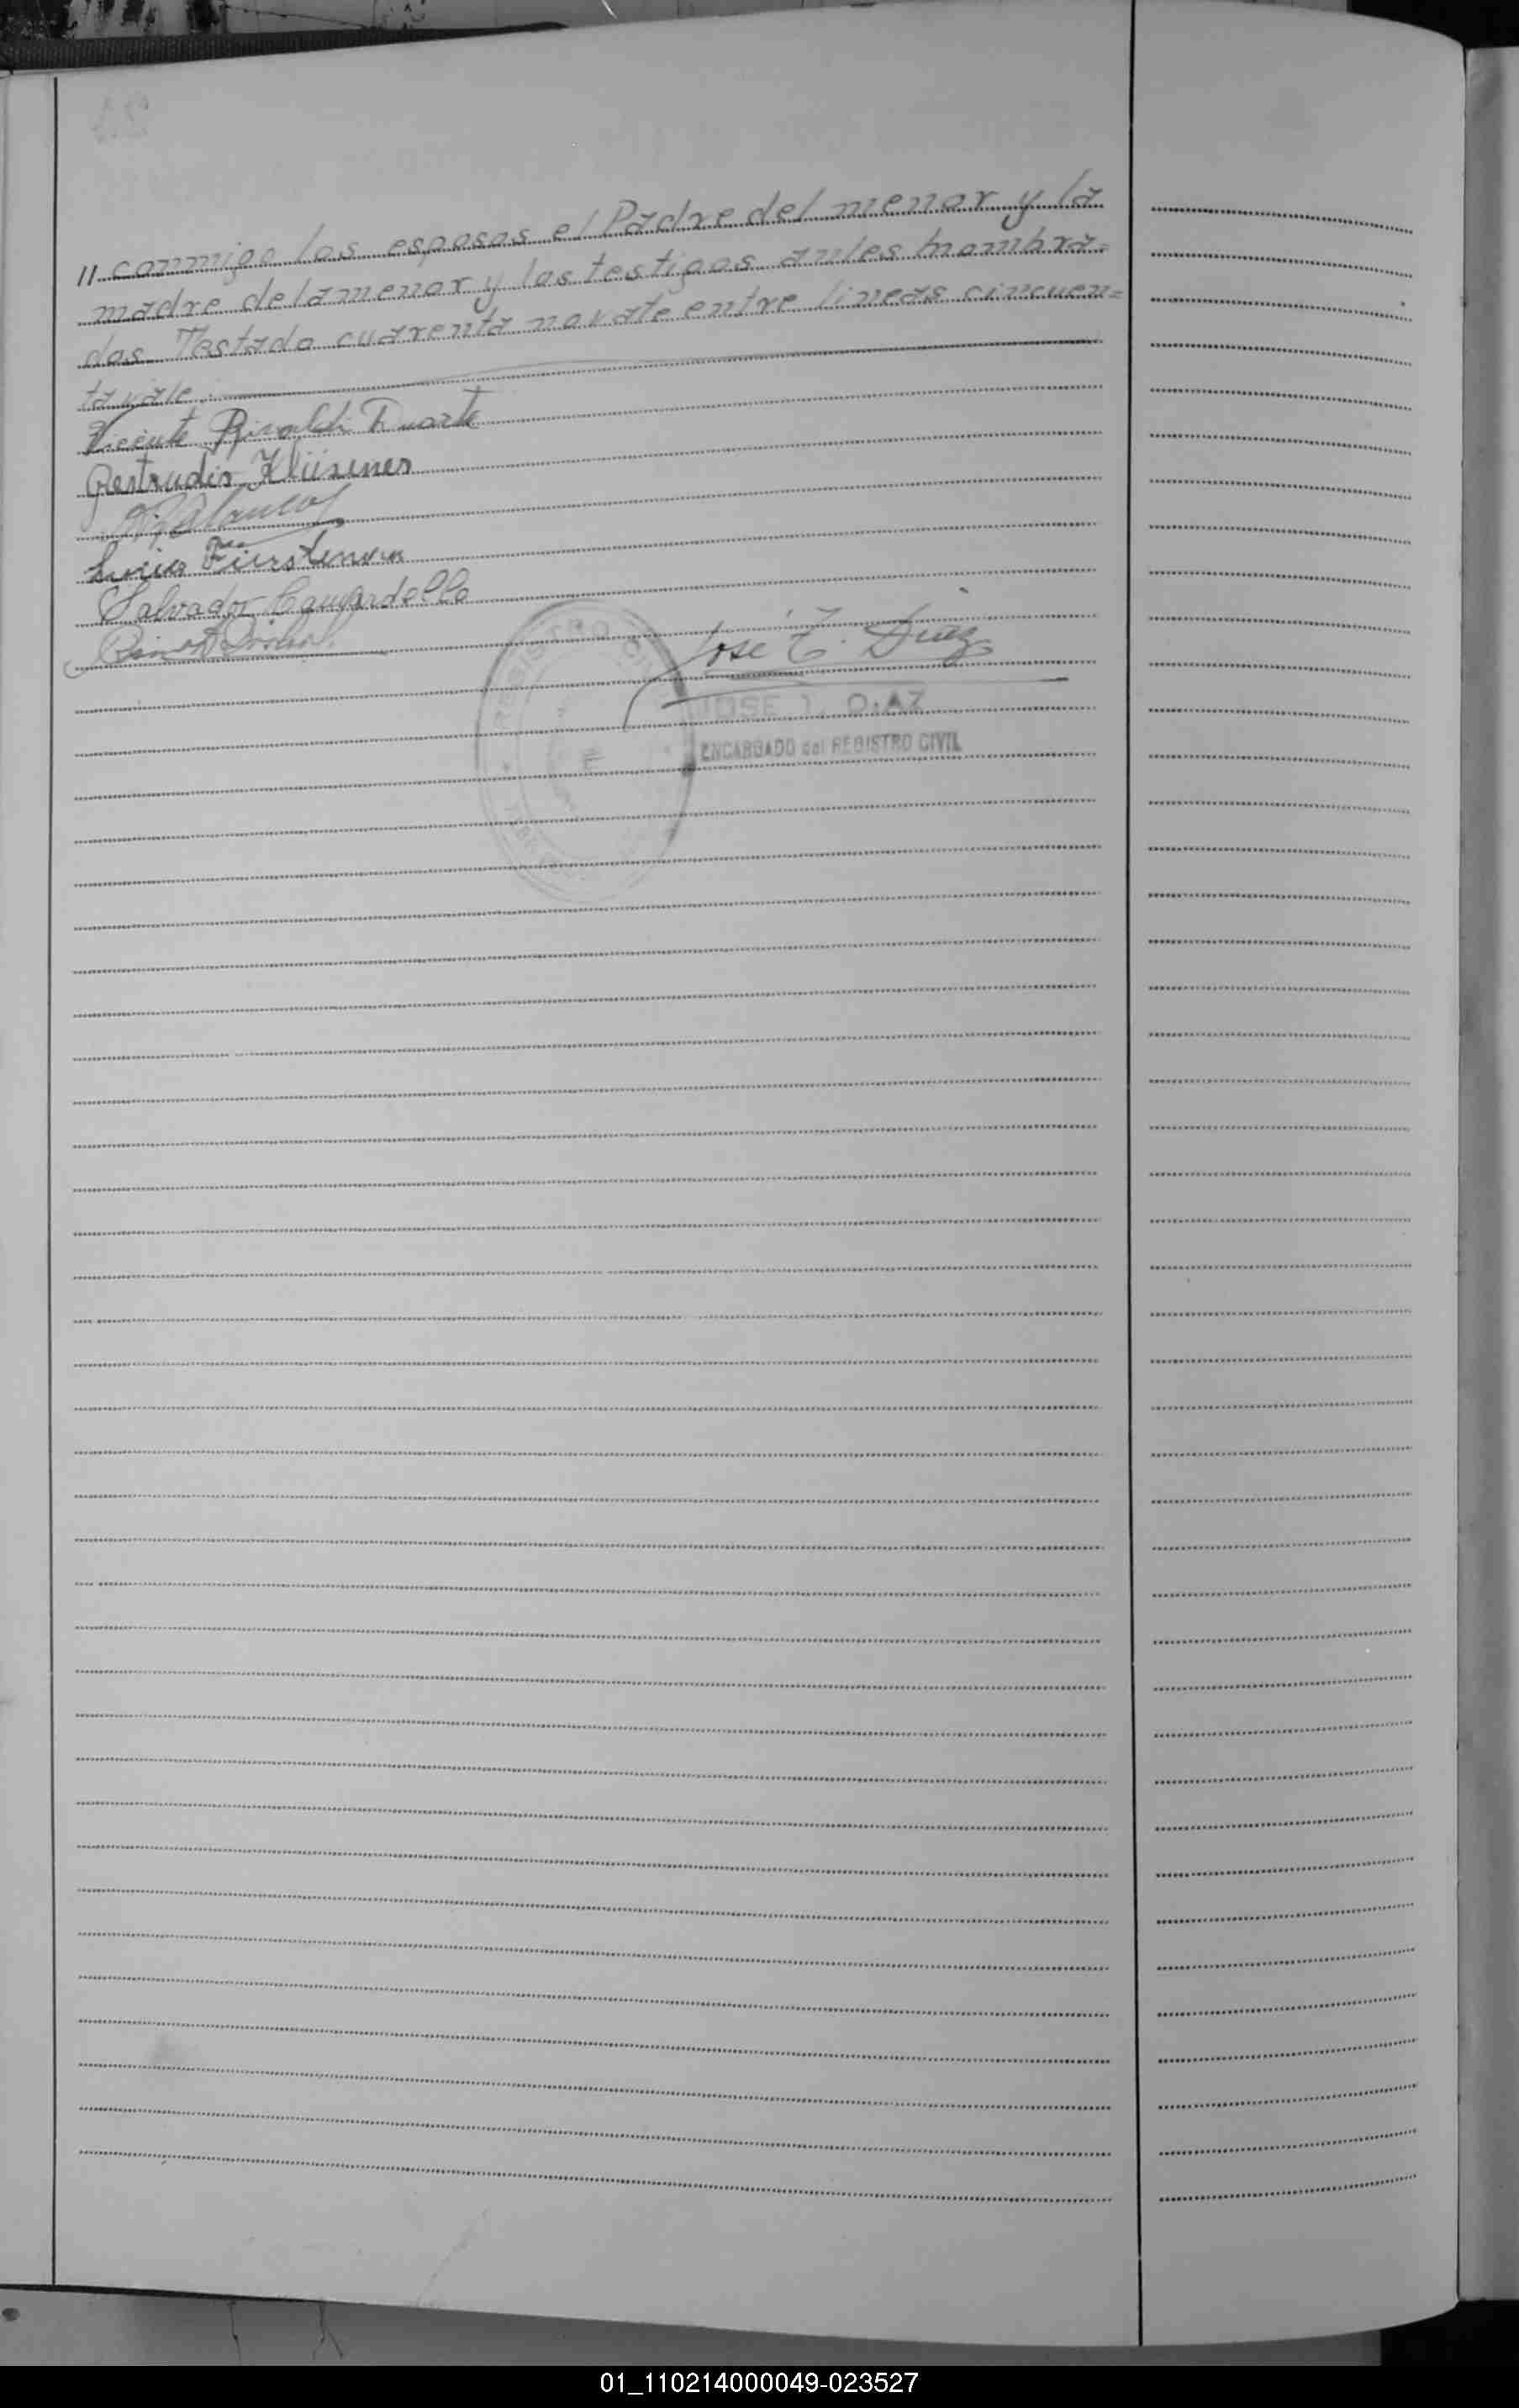 // conmigo los esposos el Padre del menor y la
madre de la menor y los testigos antes nombra=
dos. Testado cuarenta no vale entre lineas cincuen=
ta vale.
Vicente Rinaldi Duarte
Gertrudis Klüsener
Luisa Fürstenau
Salvador
José T. Diaz
JOSE T. DIAZ
ENCARGADO del REGISTRO CIVIL
REGISTRO CIVIL
01_110214000049-023527